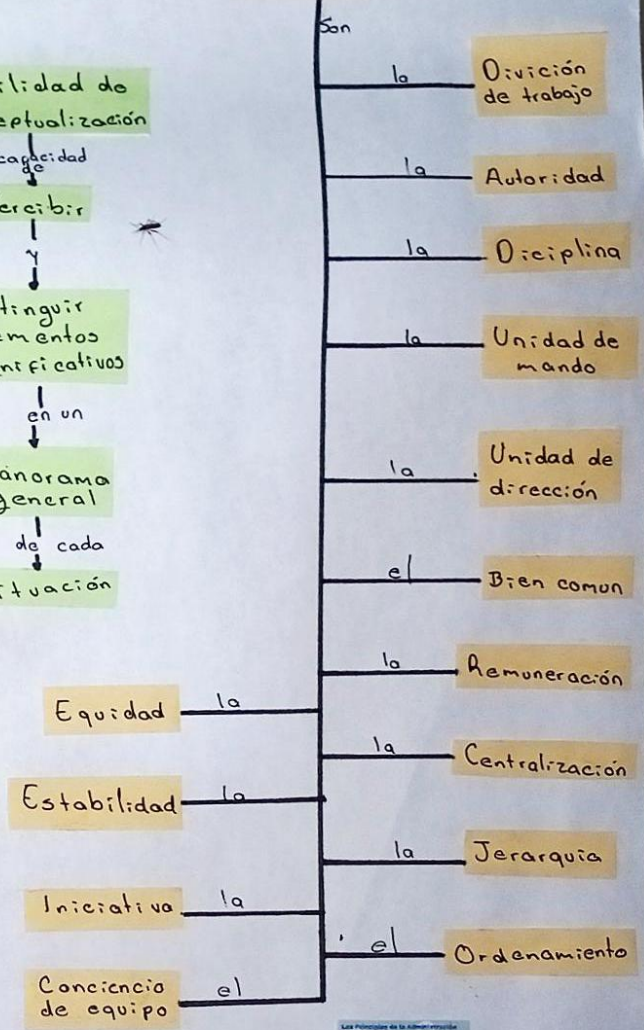 ilidad de
eptualización
capacidad
de
ercibir
y
tinguir
mentos
nificativos
en un
anorama
general
de cada
ituación
Son
la
Divición
de trabajo
la
Autoridad
la
Diciplina
la
Unidad de
mando
la
Unidad de
dirección
el
Bien comun
la
Remuneración
la
Centralización
la
Jerarquia
el
Ordenamiento
Equidad
la
Estabilidad
la
Iniciativa
la
Conciencia
de equipo
el
Los Principios de la Administración